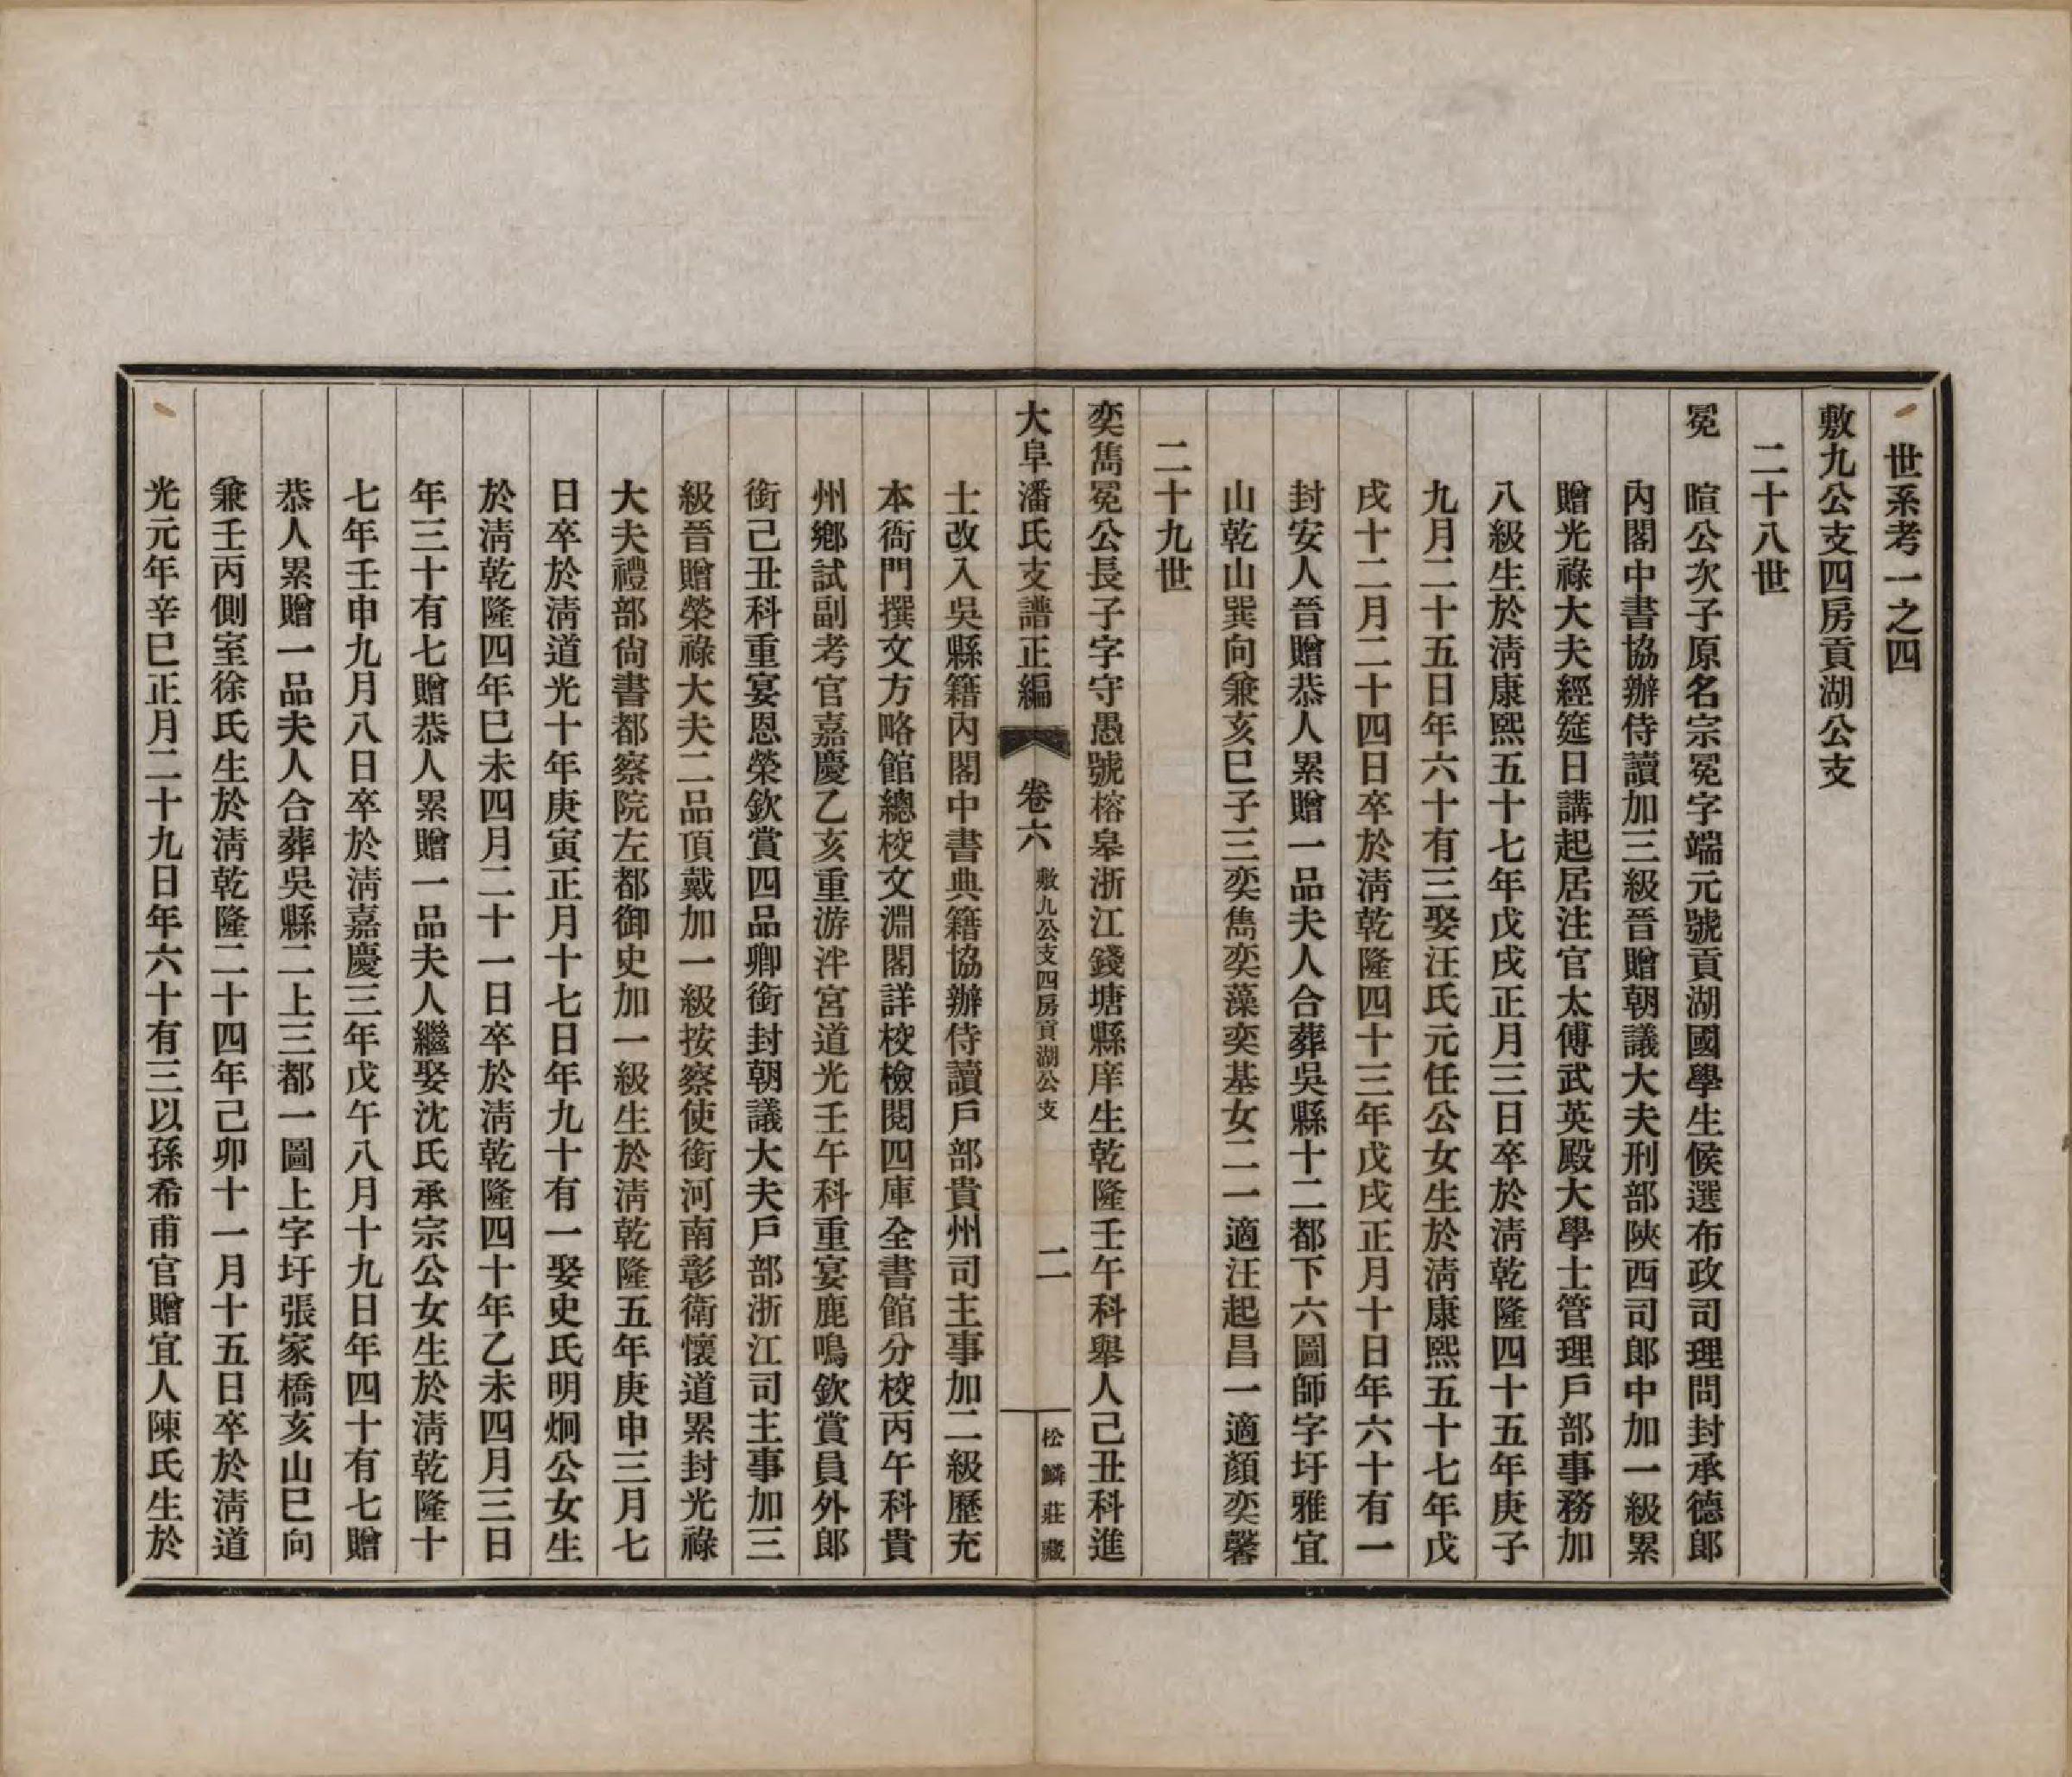 世系考一之四
敷九公支四房貢湖公支
二十八世
冕　暄公次子原名宗冕字端元號貢湖國學生候選布政司理問封承德郎
內閣中書協辦侍讀加三級晉贈朝議大夫刑部陝西司郎中加一級累
贈光祿大夫經筵日講起居注官太傅武英殿大學士管理戶部事務加
八級生於淸康熙五十七年戊戌正月三日卒於淸乾隆四十五年庚子
九月二十五日年六十有三娶汪氏元任公女生於淸康熙五十七年戊
戌十二月二十四日卒於淸乾隆四十三年戊戌正月十日年六十有一
封安人晉贈恭人累贈一品夫人合葬吳縣十二都下六圖師字圩雅宜
山乾山巽向兼亥巳子三奕雋奕藻奕基女二一適汪起昌一適顏奕馨
二十九世
奕雋冕公長子字守愚號榕皋浙江錢塘縣庠生乾隆壬午科舉人己丑科進
士改入吳縣籍內閣中書典籍協辦侍讀戶部貴州司主事加二級歷充
本衙門撰文方略館總校文淵閣詳校檢閱四庫全書館分校丙午科貴
州鄉試副考官嘉慶乙亥重游泮宮道光壬午科重宴鹿鳴欽賞員外郎
銜己丑科重宴恩榮欽賞四品卿銜封朝議大夫戶部浙江司主事加三
級晉贈榮祿大夫二品頂戴加一級按察使銜河南彰衛懷道累封光祿
大夫禮部尙書都察院左都御史加一級生於淸乾隆五年庚申三月七
日卒於淸道光十年庚寅正月十七日年九十有一娶史氏明炯公女生
於淸乾隆四年己未四月二十一日卒於淸乾隆四十年乙未四月三日
年三十有七贈恭人累贈一品夫人繼娶沈氏承宗公女生於淸乾隆十
七年壬申九月八日卒於淸嘉慶三年戊午八月十九日年四十有七贈
恭人累贈一品夫人合葬吳縣二上三都一圖上字圩張家橋亥山巳向
兼壬丙側室徐氏生於淸乾隆二十四年己卯十一月十五日卒於淸道
光元年辛巳正月二十九日年六十有三以孫希甫官贈宜人陳氏生於
大阜潘氏支譜正編　卷六　敷九公支四房貢湖公支　二　松鱗莊藏